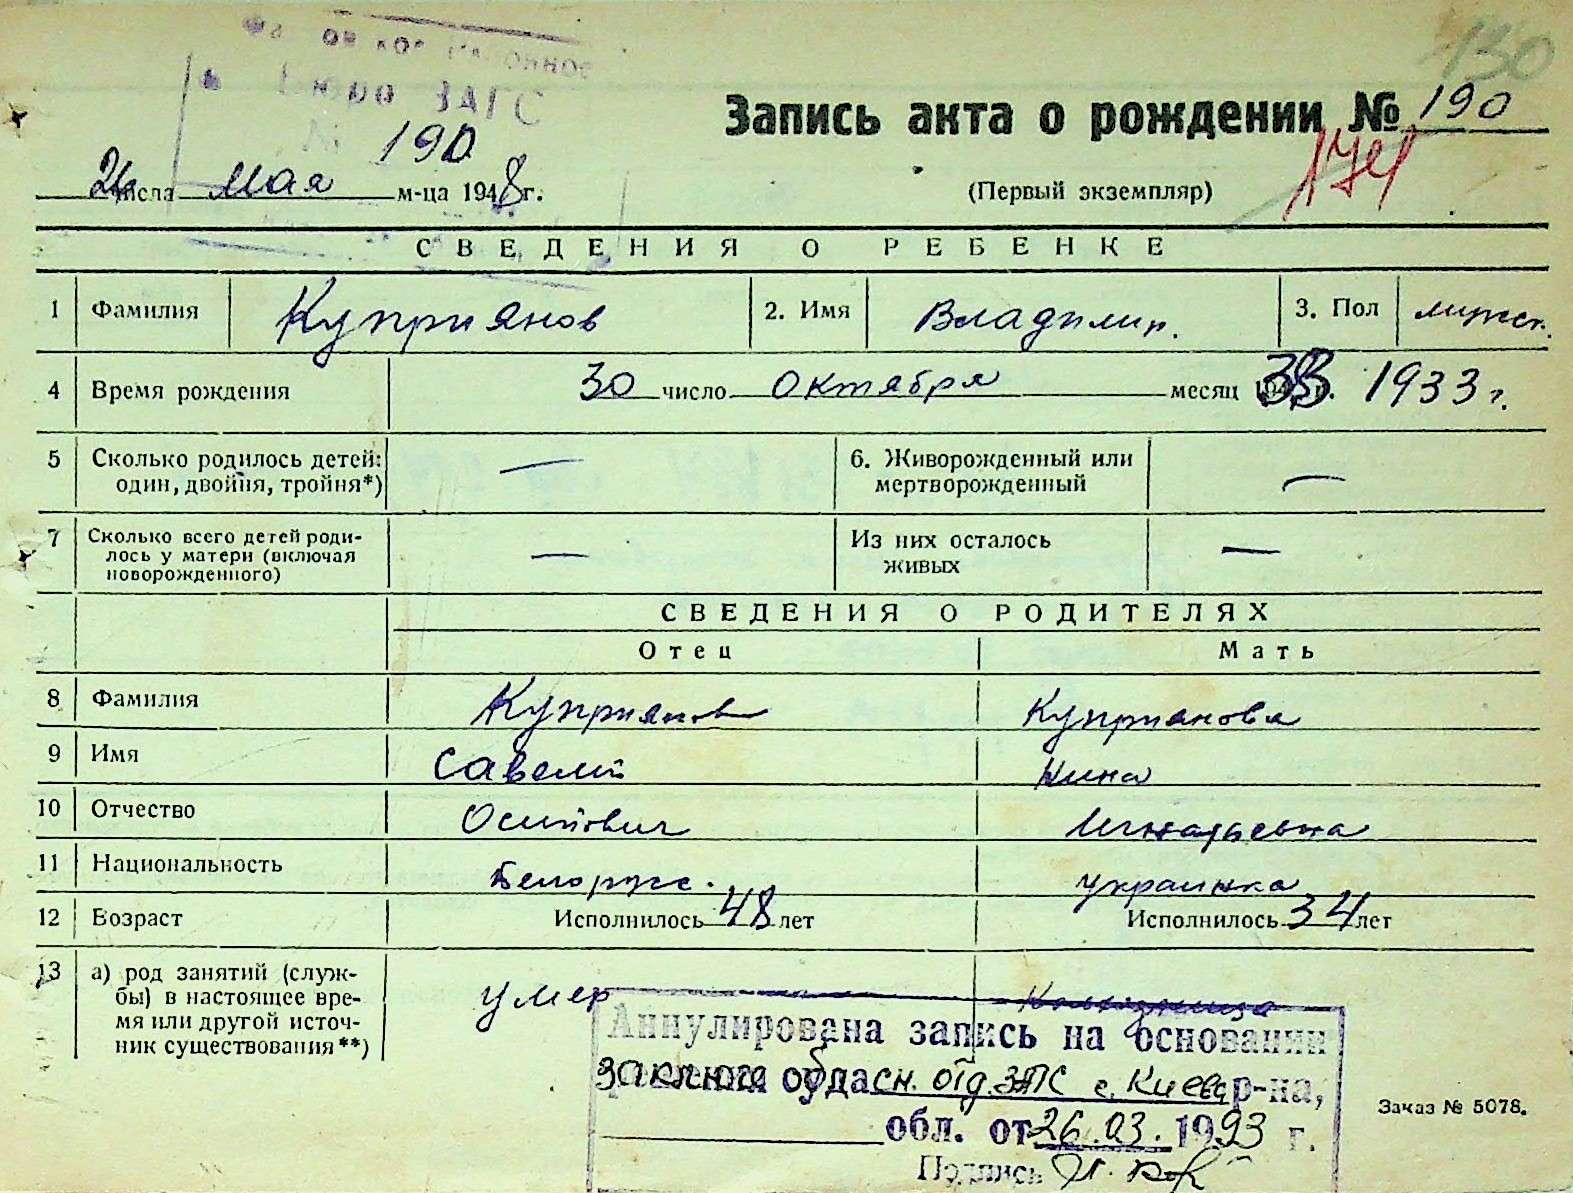 130
Бюро ЗАГС
№ 190
Запись акта о рождении № 190
174
24 числа мая м-ца 1948 г.
(Первый экземпляр)
СВЕДЕНИЯ О РЕБЕНКЕ
1 Фамилия Куприянов 2. Имя Владимир. 3. Пол мужск.
4 Время рождения 30 число октября месяц 33 1933 г.
5 Сколько родилось детей: — 6. Живорожденный или —
один, двойня, тройня*) мертворожденный
7 Сколько всего детей роди- — Из них осталось —
лось у матери (включая живых
новорожденного)
СВЕДЕНИЯ О РОДИТЕЛЯХ
Отец Мать
8 Фамилия Куприянов Куприянова
9 Имя Савелий Нина
10 Отчество Осипович Игнатьевна
11 Национальность Белорус. украинка
12 Возраст Исполнилось 48 лет Исполнилось 34 лет
13 а) род занятий (служ- умер Колхозница
бы) в настоящее вре-
мя или другой источ-
ник существования**)
Аннулирована запись на основании
заключ. обласн. отд. ЗАГС г. Киева р-на,
обл. от 26.03.1993 г.
Подпись
Заказ № 5078.